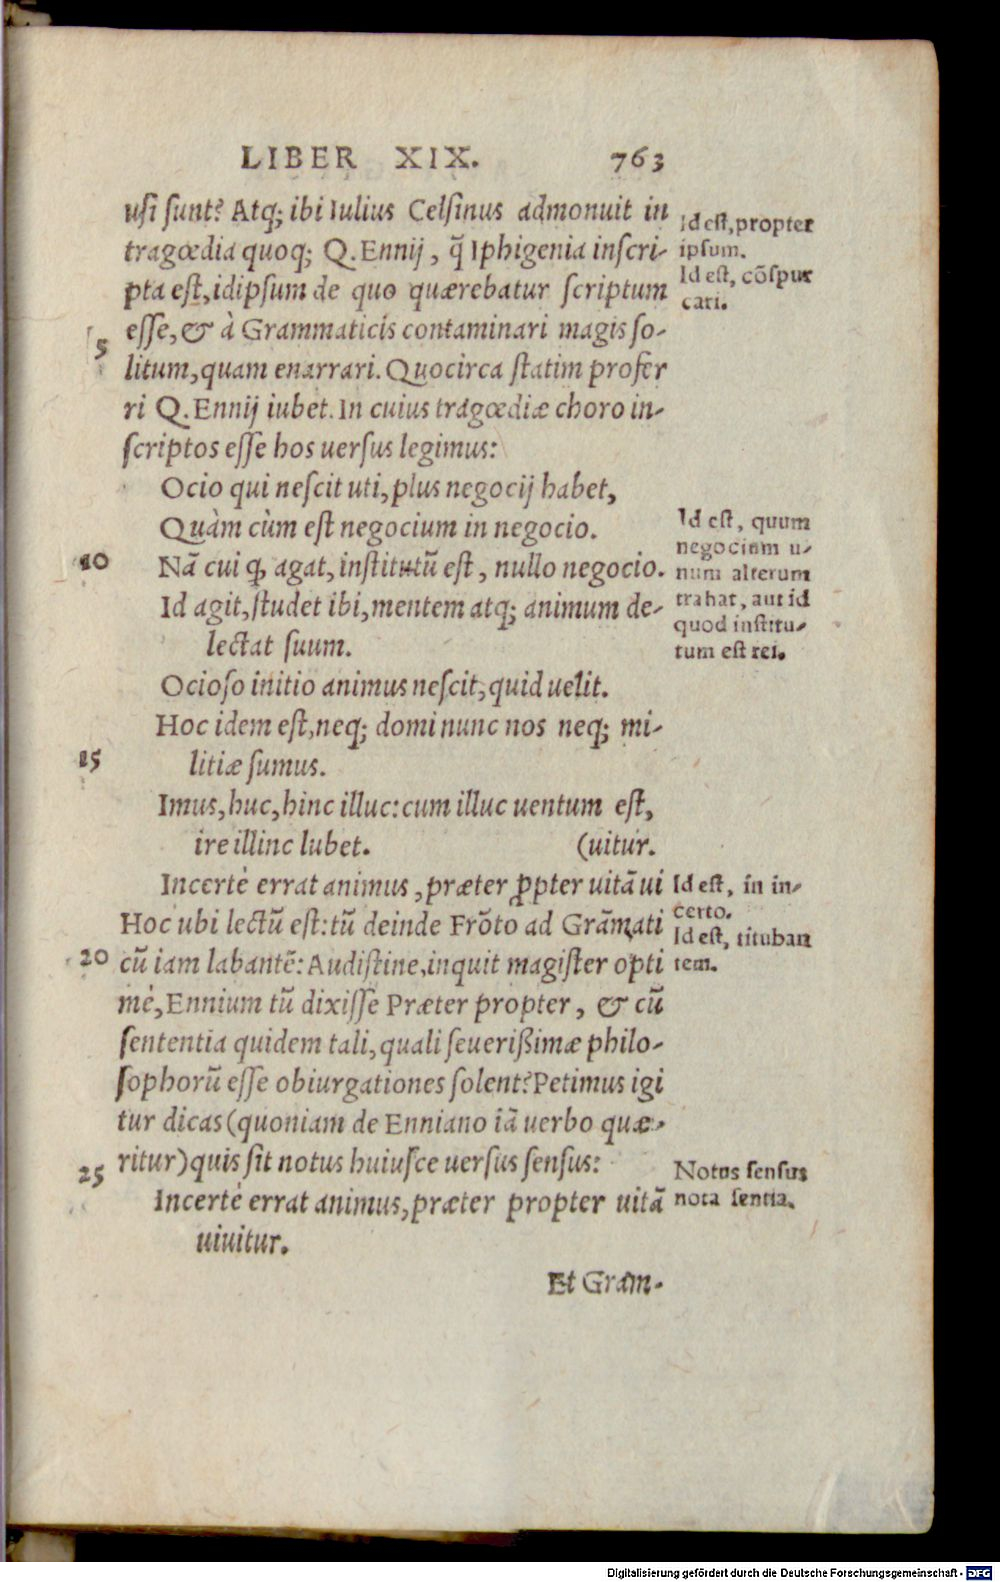 LIBER XIX. 763
usi sunt? Atq; ibi Iulius Celsinus admonuit in
tragœdia quoq; Q. Ennij, q̃ Iphigenia inscri-
pta est, idipsum de quo quærebatur scriptum
esse, & à Grammaticis contaminari magis so-
litum, quam enarrari. Quocirca statim profer
ri Q. Ennij iubet. In cuius tragœdiæ choro in-
scriptos esse hos uersus legimus:
Ocio qui nescit uti, plus negocij habet,
Quàm cùm est negocium in negocio.
Nã cui q, agat, institutũ est, nullo negocio.
Id agit, studet ibi, mentem atq; animum de-
lectat suum.
Ocioso initio animus nescit, quid uelit.
Hoc idem est, neq; domi nunc nos neq; mi-
litiæ sumus.
Imus, huc, hinc illuc: cum illuc uentum est,
ire illinc lubet. (uitur.
Incertè errat animus, præter ꝓpter uitã ui
Hoc ubi lectũ est: tũ deinde Frõto ad Grãmati
cũ iam labantẽ: Audistine, inquit magister opti
mè, Ennium tũ dixisse Præter propter, & cũ
sententia quidem tali, quali seuerißimæ philo-
sophorũ esse obiurgationes solent? Petimus igi
tur dicas (quoniam de Enniano iã uerbo quæ-
ritur) quis sit notus huiusce uersus sensus:
Incertè errat animus, præter propter uitã
uiuitur.
Et Gram-
5
10
15
20
25
Id est, propter
ipsum.
Id est, cõspur
cari.
Id est, quum
negocium u-
num alterum
trahat, aut id
quod institu-
tum est rei.
Id est, in in-
certo.
Id est, tituban
tem.
Notus sensus
nota sentia.
Digitalisierung gefördert durch die Deutsche Forschungsgemeinschaft - DFG